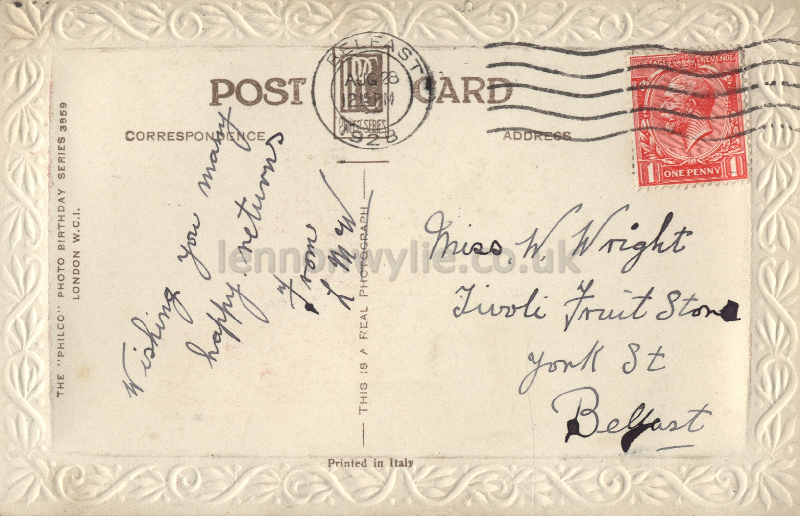 THE "PHILCO" PHOTO BIRTHDAY SERIES 3559
LONDON W.C.1.
POST CARD
CORRESPONDENCE
ADDRESS
BELFAST
AUG 28
12 15 PM
1928
SERIES
POSTAGE REVENUE
1 ONE PENNY 1
Wishing you many
happy returns
From
L M W
THIS IS A REAL PHOTOGRAPH
Miss W, Wright
Tivoli Fruit Store
York St
Belfast
Printed in Italy
lennonwylie.co.uk